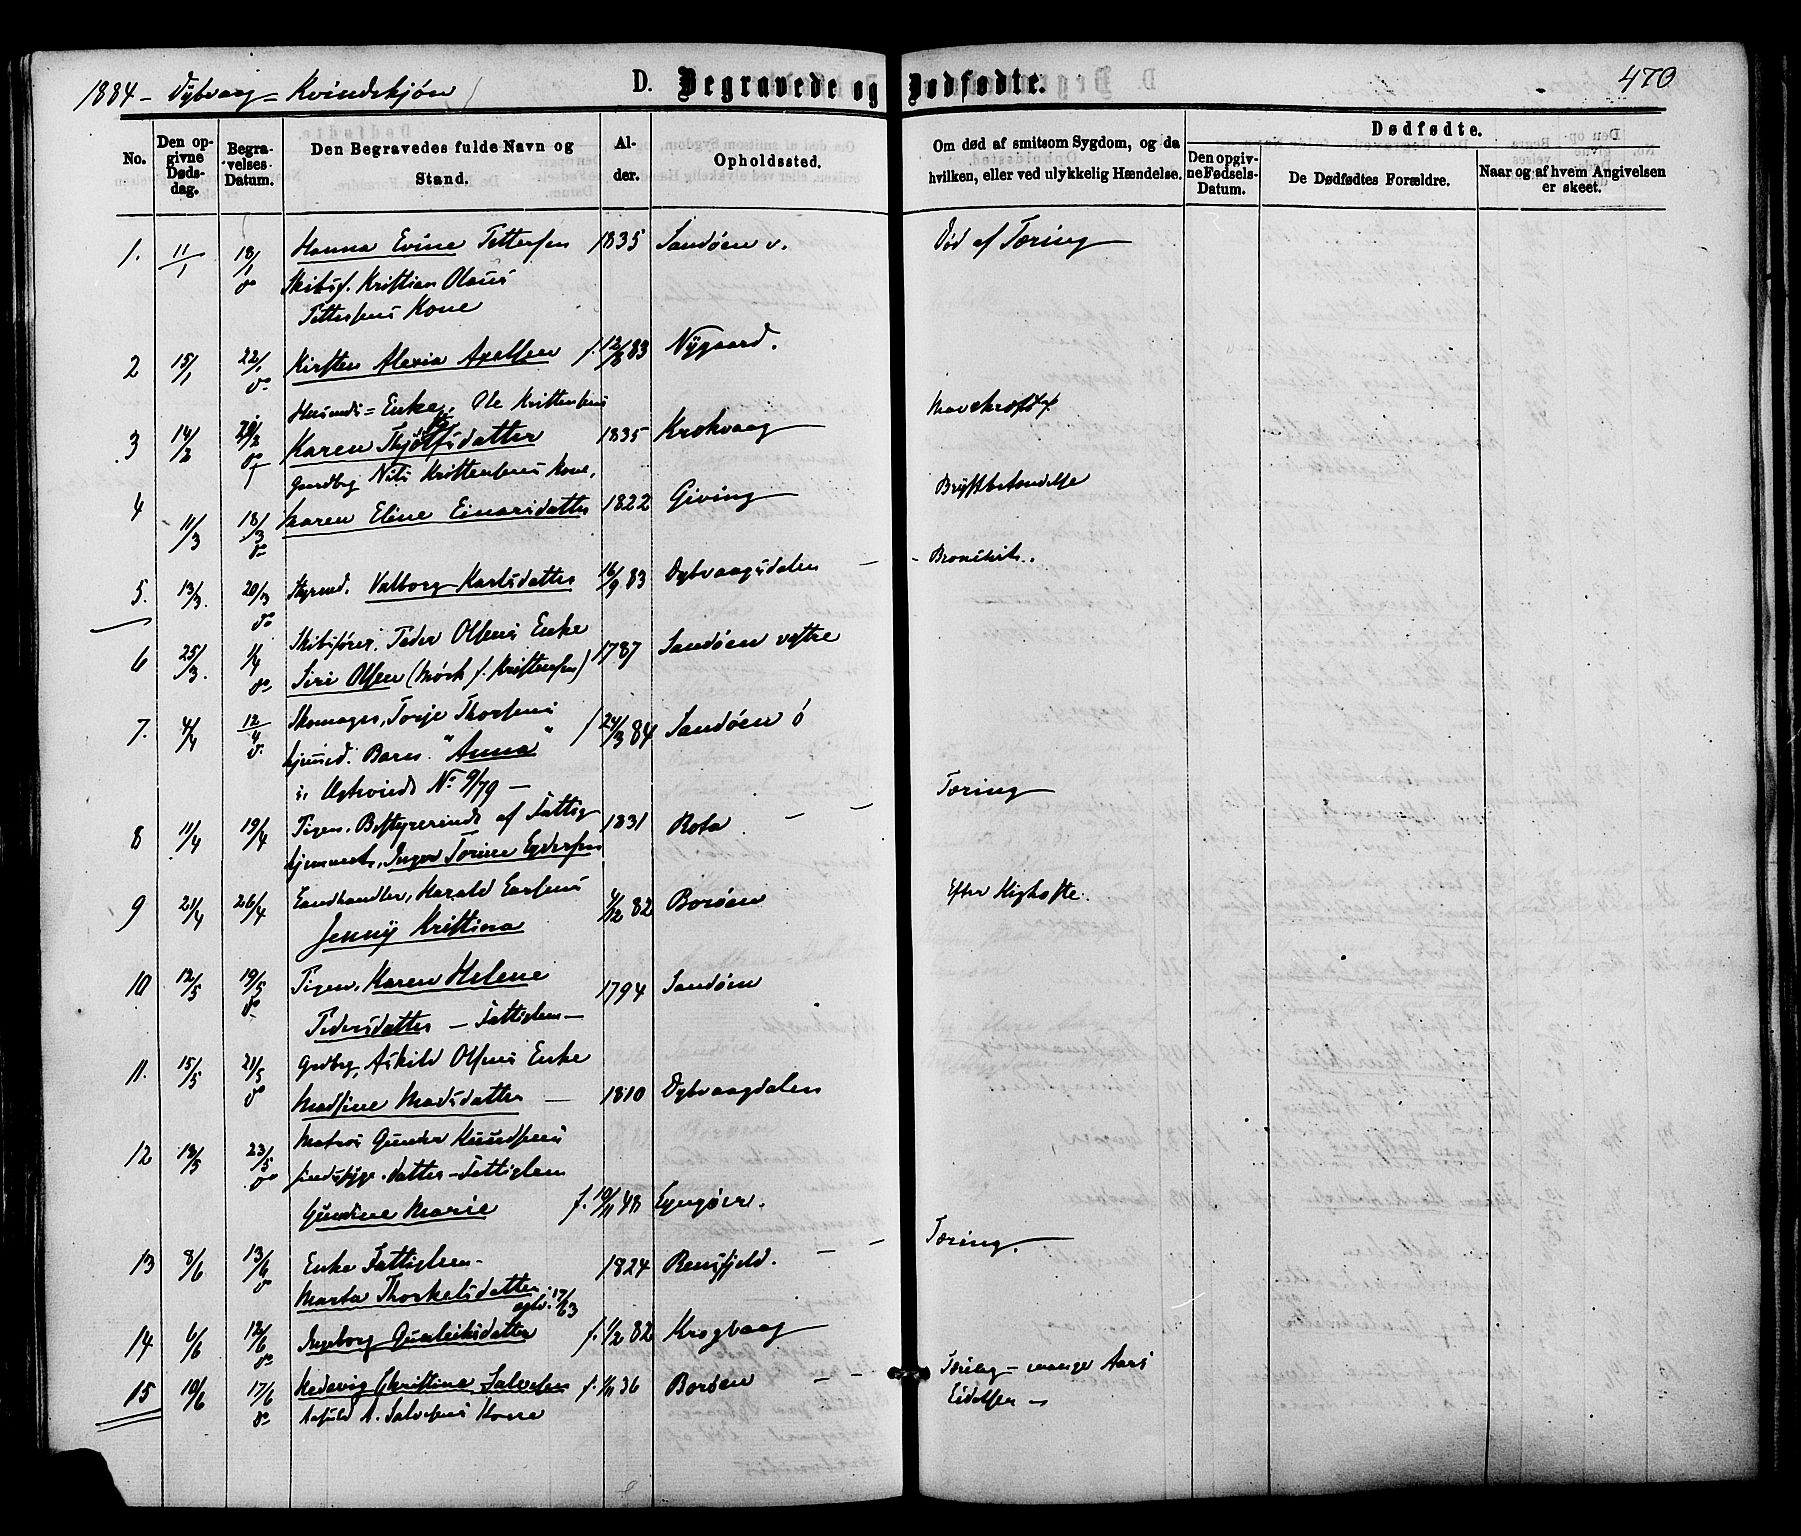 1884 - Dybvaag - Kvindekjøn
D. Begravede og Dødfødte.
470
No.
Den opgivne Dødsdag.
Begravelses Datum.
Den Begravedes fulde Navn og Stand.
Alder.
Opholdssted.
Om død af smitsom Sygdom, og da hvilken, eller ved ulykkelig Hændelse.
Dødfødte.
Den opgivne Fødsels-Datum.
De Dødfødtes Forældre.
Naar og af hvem Angivelsen er skeet.
1. 11/1 18/1 Hanna Evine Terjesen 1835 Sandøen v. Død af Tæring
Skibsf. Kristian Olaus
Kone
2 15/1 22/1 Kirsten Alexia Axelsen f. 12/8 83 Nygaard.
Husmds = Enke, Ole Kristensens
3 14/2 20/2 Karen Thjølfsdatter 1835 Krokvaag
Gaardbr Nils Kristensens Kone,
4 11/3 18/3 Karen Eline Einarsdatter 1822 Giving Brystbetændelse
5. 13/3. 20/3 Valborg Karlsdatter 16/9 83 Dybvaagsdalen - Bronchit.
Skibsfører Peder Olsens Enke
6 25/3. 1/4 Siri Olsen (Mørk f. Kristensen) 1787 Sandøen vestre
7. 4/4 12/4 Skomager, Terje Thorsens f 24/3 84 Sandøen ö
hjemmed. Barn "Anna"
No 9/79 -
8 11/4 19/4 Pigen, Bestyrerinde af Fattig 1831 Rota - Tæring
hjemmet, Inger Torine Eydersen
9 21/4 26/4 Landhandler, Harald Larsens 4/12 82 Borøen Efter Kighoste.
Jenny Kristina
10 12/5 19/5 Pigen, Karen Helene 1794 Sandøen
Pedersdatter - Fattiglem -
11. 15/5 21/5 Grdbr, Askild Olsens Enke
Madsine Madsdatter - 1810 Dybvaagdalen
12 18/5 23/5 Matros Gunder Knudsens
sindssyge Datter - Fattiglem
Gundine Marie f. 19/11 48 Lyngøer.
13 8/6 13/6 Enke Fattiglem - 1824 Rensfjeld. - - Tæring.
Marta Thorkelsdatter
14 6/6 12/6 Ingeborg Gunleiksdatter f. 1/2 82 Krogvaag
15 10/6 17/6 Hedevig Christina Salvesen f. 1/11 36 Borøen - - Tæring - mange Aars
A. Salvesens Kone Lidelser -